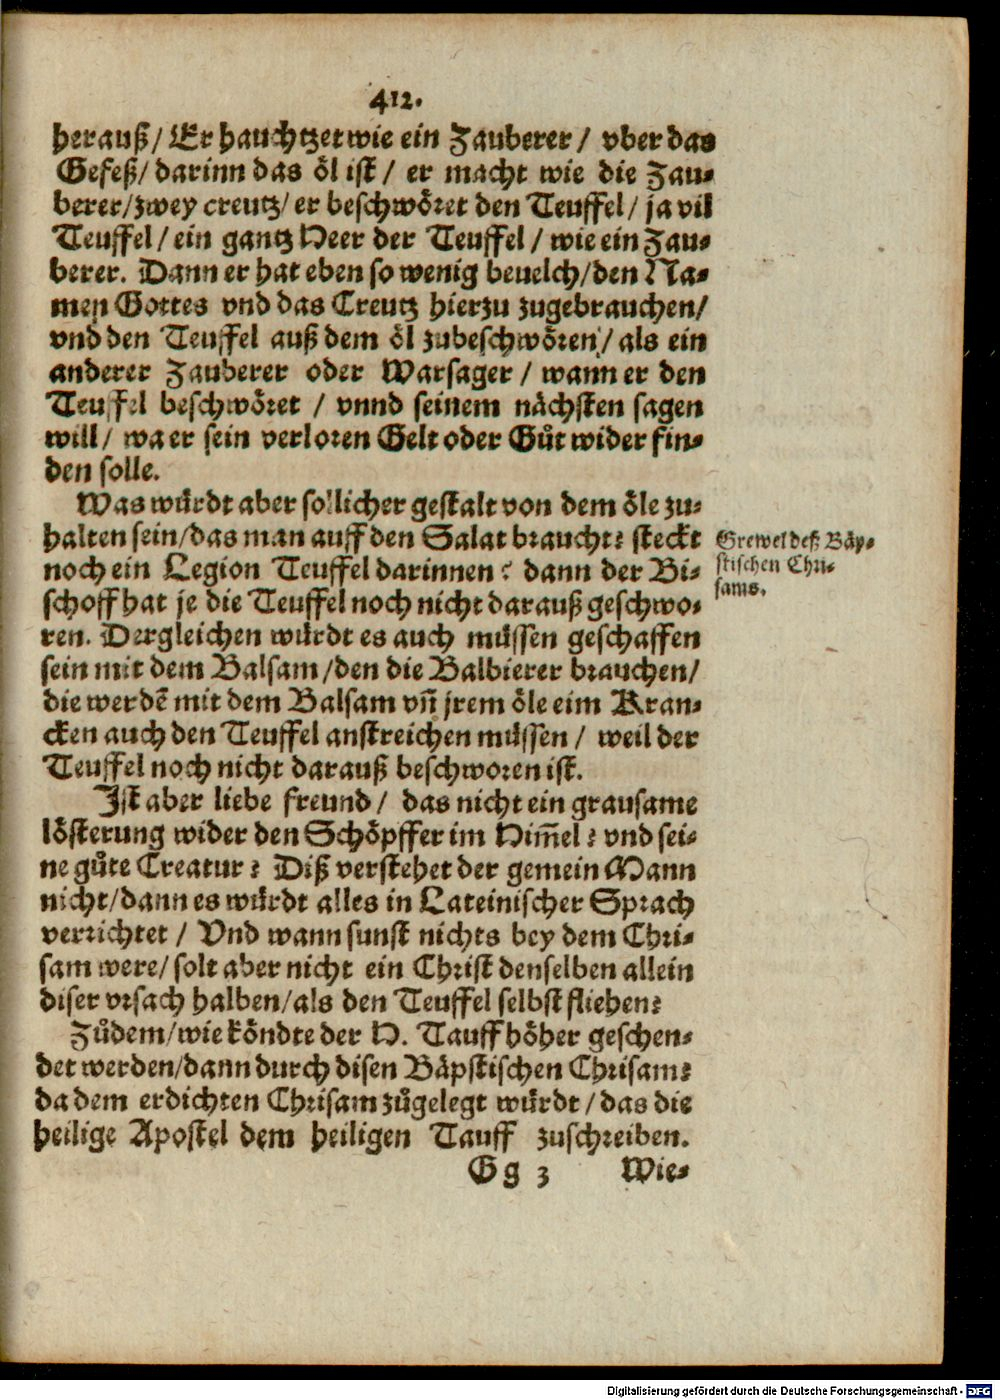 412.
herauß/ Er hauchtzet wie ein Zauberer/ vber das
Gefeß/ darinn das öl ist/ er macht wie die Zau-
berer/ zwey creutz/ er beschwöret den Teuffel/ ja vil
Teuffel/ ein gantz Heer der Teuffel/ wie ein Zau-
berer. Dann er hat eben so wenig beuelch/ den Na-
men Gottes vnd das Creutz hierzu zugebrauchen/
vnd den Teuffel auß dem öl zubeschwören/ als ein
anderer Zauberer oder Warsager/ wann er den
Teuffel beschwöret/ vnnd seinem nächsten sagen
will/ wa er sein verloren Gelt oder Gůt wider fin-
den solle.
Was würdt aber sollicher gestalt von dem öle zu-
halten sein/ das man auff den Salat braucht? steckt
noch ein Legion Teuffel darinnen? dann der Bi-
schoff hat je die Teuffel noch nicht darauß geschwo-
ren. Dergleichen würdt es auch müssen geschaffen
sein mit dem Balsam/ den die Balbierer brauchen/
die werdē mit dem Balsam vñ jrem öle eim Kran-
cken auch den Teuffel anstreichen müssen/ weil der
Teuffel noch nicht darauß beschworen ist.
Ist aber liebe freund/ das nicht ein grausame
lösterung wider den Schöpffer im Him̃el? vnd sei-
ne gůte Creatur? Diß verstehet der gemein Mann
nicht/ dann es würdt alles in Lateinischer Sprach
verrichtet/ Vnd wann sunst nichts bey dem Chri-
sam were/ solt aber nicht ein Christ denselben allein
diser vrsach halben/ als den Teuffel selbst fliehen?
Zůdem/ wie köndte der H. Tauff höher geschen-
det werden/ dann durch disen Bäpstischen Chrisam?
da dem erdichten Chrisam zůgelegt würdt/ das die
heilige Apostel dem heiligen Tauff zuschreiben.
Gg 3 Wie-
Grewel deß Bäp-
stischen Chri-
sams.
Digitalisierung gefördert durch die Deutsche Forschungsgemeinschaft - DFG